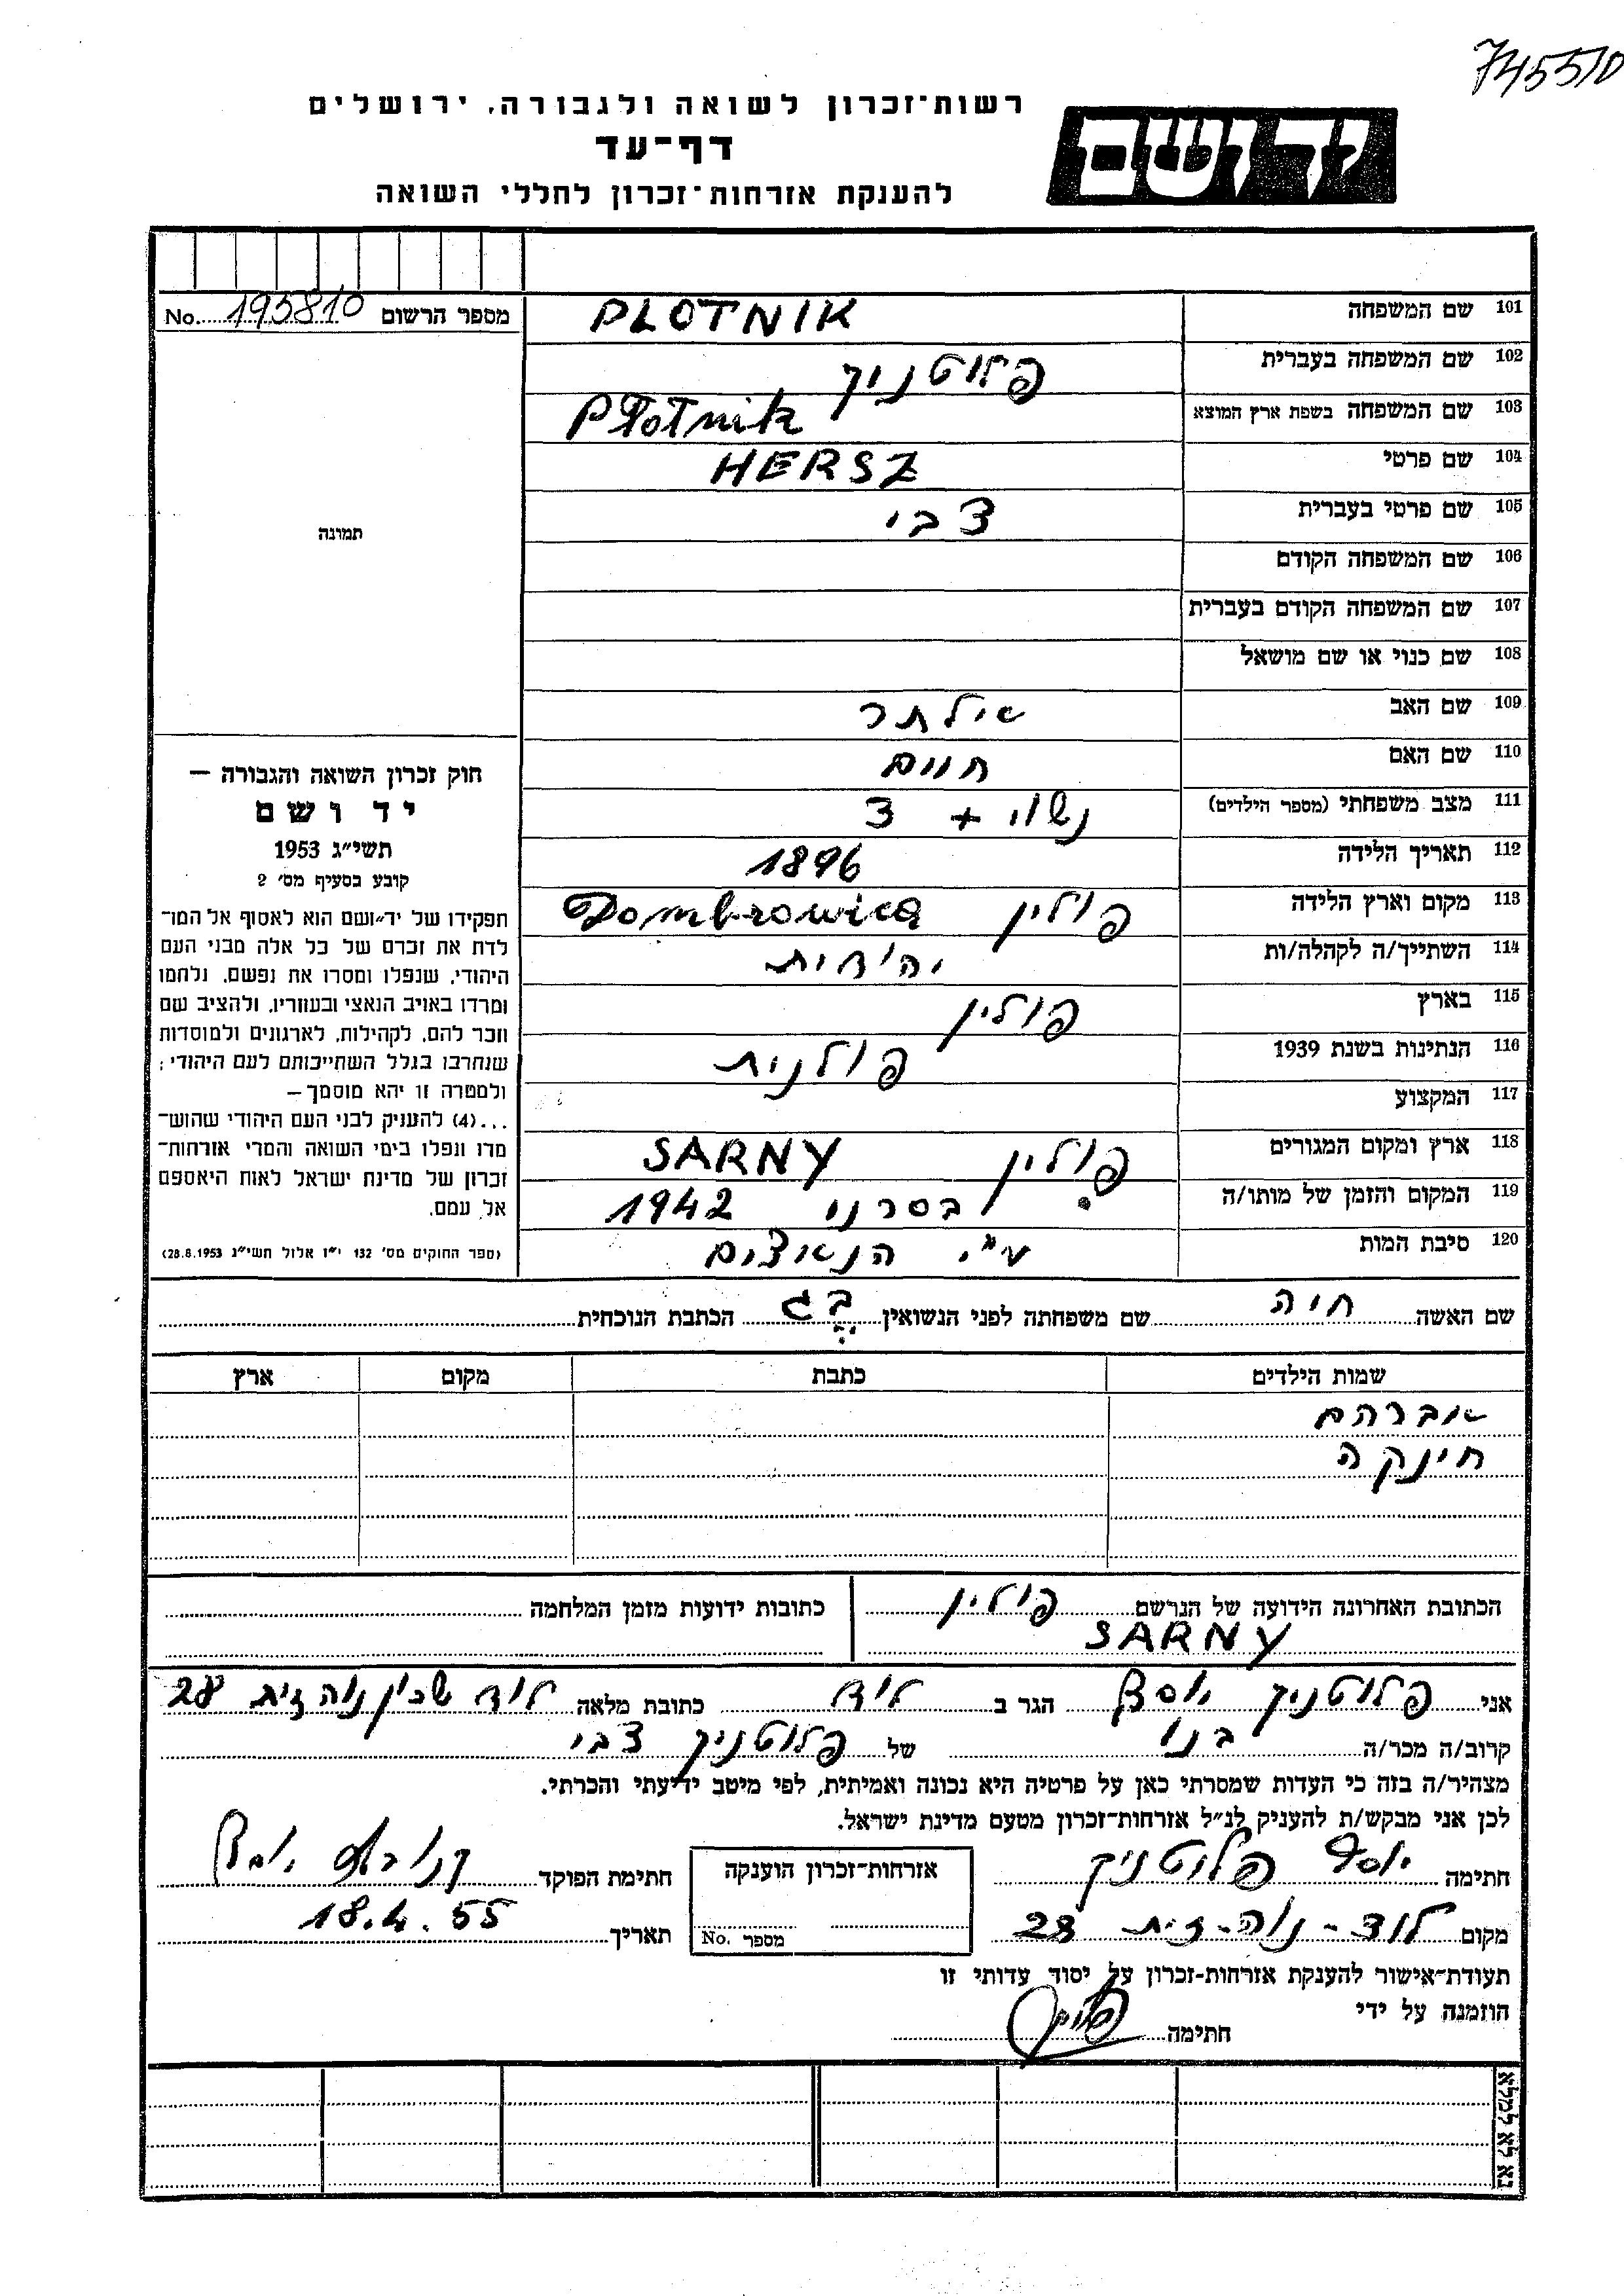 745510
ידושם
רשות־זכרון לשואה ולגבורה, ירושלים
דף־עד
להענקת אזרחות־זכרון לחללי השואה
מספר הרשום No. 195810
101 שם המשפחה PLOTNIK
102 שם המשפחה בעברית פלוטניק
103 שם המשפחה בשפת ארץ המוצא Płotnik
104 שם פרטי HERSZ
105 שם פרטי בעברית צבי
106 שם המשפחה הקודם
107 שם המשפחה הקודם בעברית
108 שם כנוי או שם מושאל
109 שם האב אילתר
110 שם האם
111 מצב משפחתי (מספר הילדים) נשוי + 3
112 תאריך הלידה 1896
113 מקום וארץ הלידה פולין Dombrowica
114 השתייך/ה לקהלה/ות יהודית
115 בארץ פולין
116 הנתינות בשנת 1939 פולנית
117 המקצוע
118 ארץ ומקום המגורים פולין SARNY
119 המקום והזמן של מותו/ה בסרני 1942
120 סיבת המות ע"י הנאצים
תמונה
חוק זכרון השואה והגבורה —
יד ושם
תשי״ג 1953
קובע בסעיף מס׳ 2
תפקידו של יד־ושם הוא לאסוף אל המו־
לדת את זכרם של כל אלה מבני העם
היהודי, שנפלו ומסרו את נפשם, נלחמו
ומרדו באויב הנאצי ובעוזריו, ולהציב שם
וזכר להם, לקהילות, לארגונים ולמוסדות
שנחרבו בגלל השתייכותם לעם היהודי;
ולמטרה זו יהא מוסמך—
...(4) להעניק לבני העם היהודי שהוש־
מדו ונפלו בימי השואה והמרי אזרחות־
זכרון של מדינת ישראל לאות היאספם
אל עמם.
(ספר החוקים מס׳ 132 י״ז אלול תשי״ג 28.8.1953)
שם האשה חיה שם משפחתה לפני הנשואין הכתבת הנוכחית
שמות הילדים כתבת מקום ארץ
אברהם
חינקה
הכתובת האחרונה הידועה של הנרשם פולין כתובות ידועות מזמן המלחמה
SARNY
אני פלוטניק יוסף הגר ב לוד כתובת מלאה לוד שכון נוה זית 28
קרוב/ה מכר/ה בנו של פלוטניק צבי
מצהיר/ה בזה כי העדות שמסרתי כאן על פרטיה היא נכונה ואמיתית, לפי מיטב ידיעתי והכרתי.
לכן אני מבקש/ת להעניק לנ״ל אזרחות־זכרון מטעם מדינת ישראל.
חתימה יוסף פלוטניק אזרחות־זכרון הוענקה חתימת הפוקד
מקום לוד - נוה - זית 28 מספר No. תאריך 18.4.55
תעודת־אישור להענקת אזרחות־זכרון על יסוד עדותי זו
הוזמנה על ידי
חתימה
נא לא למלא